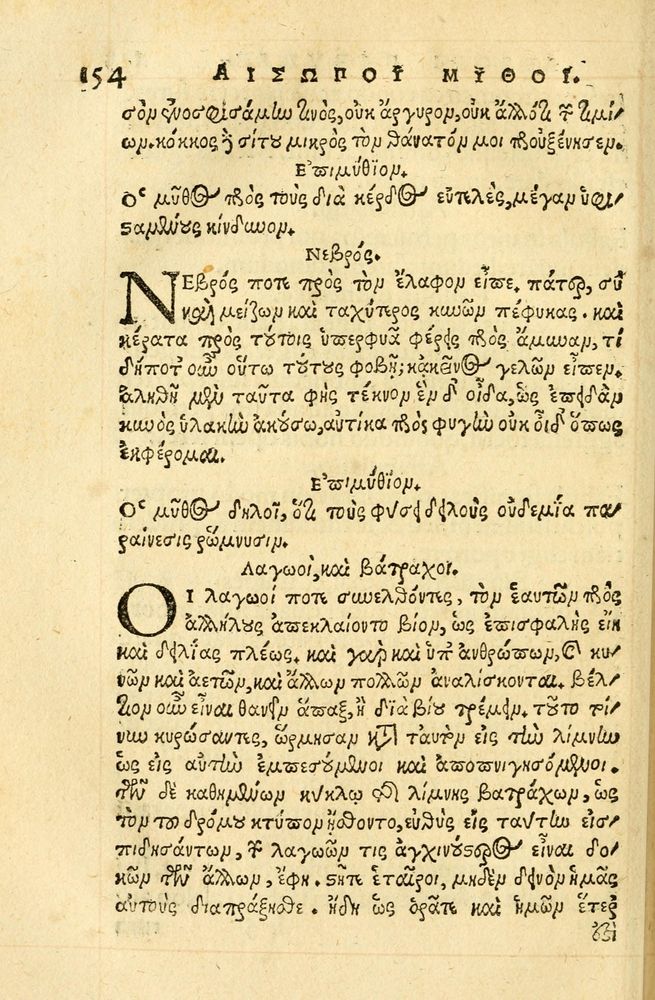 154 ΑΙΣΩΠΟΥ ΜΥΘΟΙ.
σον ἐνοσφισάμην τινός, οὐκ ἄργυρον, οὐκ ἄλλό τι τῶν τιμί
ων. κόκκος δὲ σίτου μικρὸς τὸν θάνατόν μοι προυξένησεν.
Ἐπιμύθιον.
Ὁ μῦθος πρὸς τοὺς διὰ κέρδος εὐτελὲς, μέγαν ὑφι
σαμένους κίνδυνον.
Νεβρός.
ΝΕβρός ποτε πρὸς τὸν ἔλαφον εἶπε. πάτερ, σὺ
καὶ μείζων καὶ ταχύτερος κυνῶν πέφυκας. καὶ
κέρατα πρὸς τούτοις ὑπερφυᾶ φέρεις πρὸς ἄμυναν, τί
δήποτ' οὖν οὕτω τούτους φοβῇ; κἀκεῖνος γελῶν εἶπεν.
ἀληθῆ μὲν ταῦτα φῂς τέκνον ἓν δ' οἶδα, ὡς ἐπειδὰν
κυνὸς ὑλακὴν ἀκούσω, αὐτίκα πρὸς φυγὴν οὐκ οἶδ' ὅπως
ἐκφέρομαι.
Ἐπιμύθιον.
Ὁ μῦθος δηλοῖ, ὅτι τοὺς φύσει δειλοὺς οὐδεμία πα
ραίνεσις ῥώννυσιν.
Λαγωοὶ, καὶ βάτραχοι.
ΟΙ λαγωοί ποτε συνελθόντες, τὸν ἑαυτῶν πρὸς
ἀλλήλους ἀπεκλαίοντο βίον, ὡς ἐπισφαλὴς εἴη
καὶ δειλίας πλέως. καὶ γὰρ καὶ ὑπ' ἀνθρώπων, καὶ κυ
νῶν καὶ ἀετῶν, καὶ ἄλλων πολλῶν ἀναλίσκονται. βέλ
τιον οὖν εἶναι θανεῖν ἅπαξ, ἢ διὰ βίου τρέμειν. τοῦτο τοί
νυν κυρώσαντες, ὥρμησαν κατὰ ταυτὸν εἰς τὴν λίμνην
ὡς εἰς αὐτὴν ἐμπεσούμενοι καὶ ἀποπνιγησόμενοι.
τῶν δὲ καθημένων κύκλῳ τῆς λίμνης βατράχων, ὡς
τὸν τοῦ δρόμου κτύπον ᾔσθοντο, εὐθὺς εἰς ταύτην εἰσ
πηδησάντων, τῶν λαγωῶν τις ἀγχινούστερος εἶναι δο
κῶν τῶν ἄλλων, ἔφη. στῆτε ἑταῖροι, μηδὲν δεινὸν ἡμᾶς
αὐτοὺς διαπράξησθε. ἤδη ὡς ὁρᾶτε καὶ ἡμῶν ἕτερ